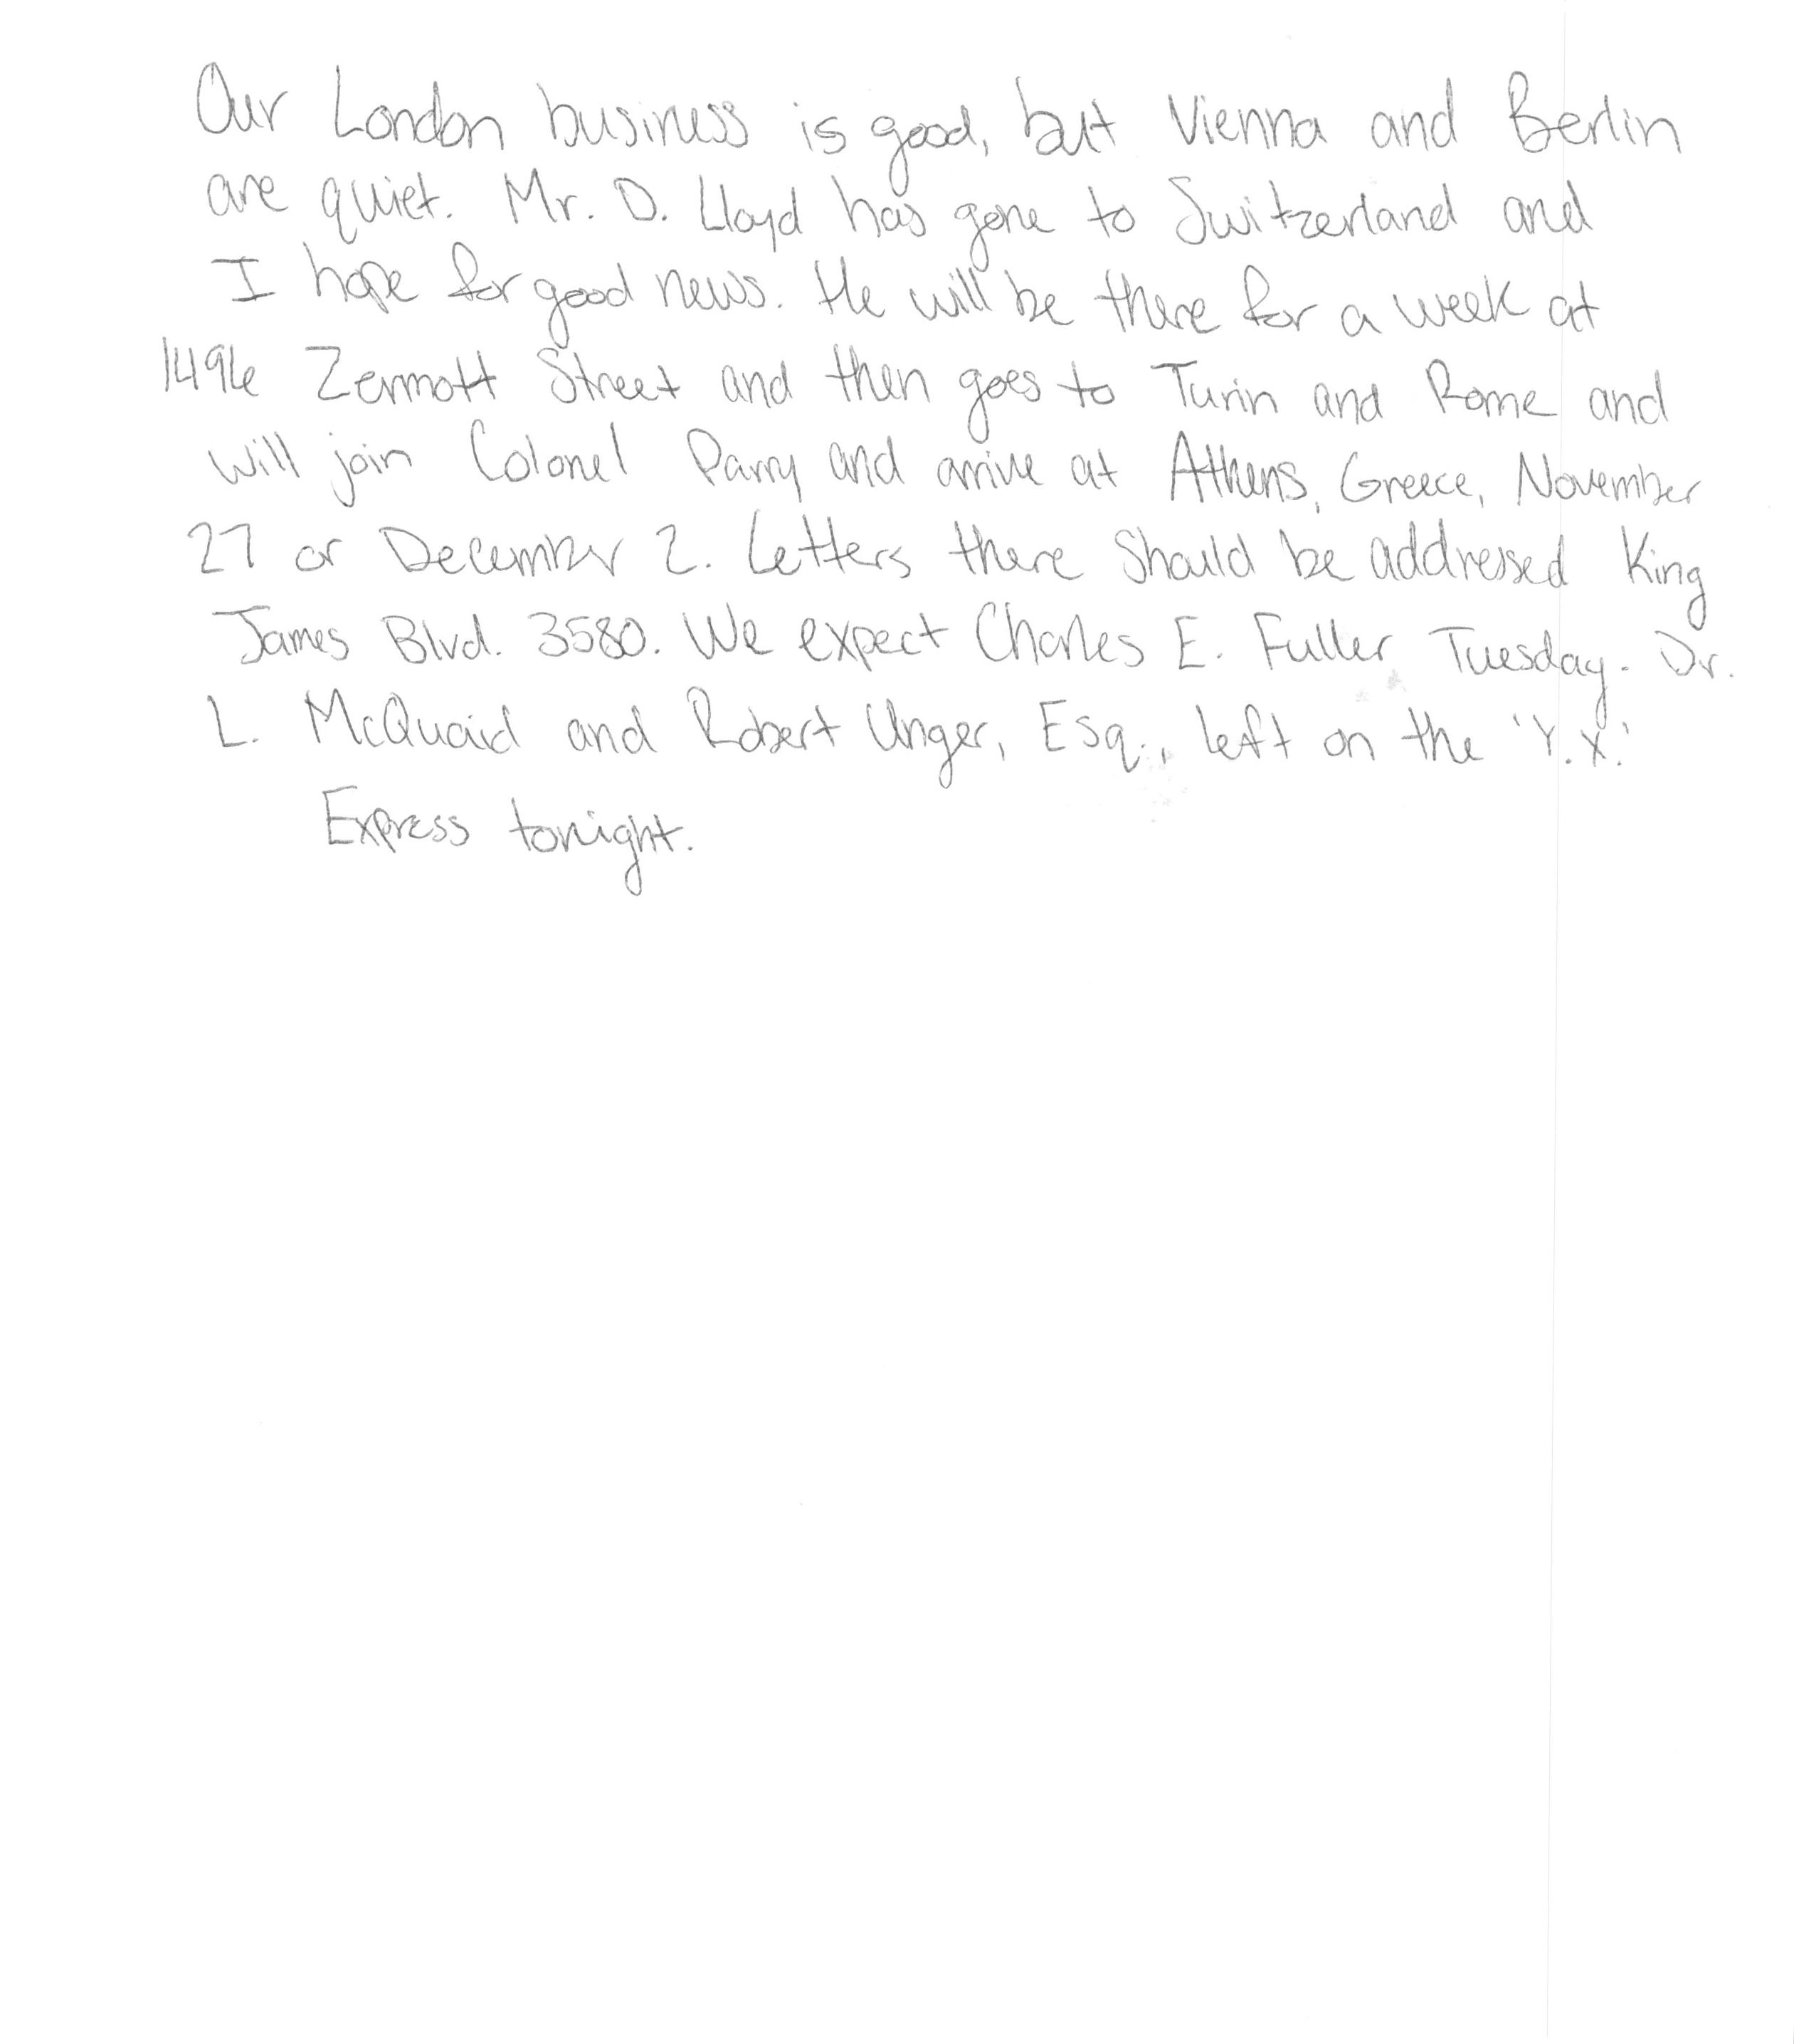 Our London business is good, but Vienna and Berlin
are quiet. Mr. D. Lloyd has gone to Switzerland and
I hope for good news. He will be there for a week at
1496 Zermott Street and then goes to Turin and Rome and
will join Colonel Parry and arrive at Athens, Greece, November
27 or December 2. Letters there should be addressed King
James Blvd. 3580. We expect Charles E. Fuller Tuesday. Dr.
L. McQuaid and Robert Unger, Esq., left on the 'Y.X.'
Express tonight.